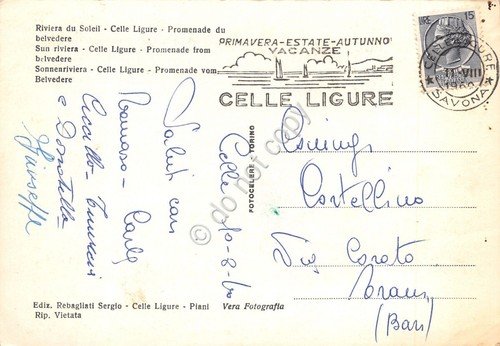 Riviera du Soleil - Celle Ligure - Promenade du
belvedere
Sun riviera - Celle Ligure - Promenade from
belvedere
Sonnenriviera - Celle Ligure - Promenade vom
Belvedere
PRIMAVERA-ESTATE-AUTUNNO
VACANZE
CELLE LIGURE
LIRE 15
CELLE LIGURE
11 VIII
SAVONA
Celle 10-8-60
Saluti cari
Tommaso - Carla
e Donatella
Giuseppe
FOTOCELERE TORINO
do not copy
Corato
Trani
(Bari)
Ediz. Rebagliati Sergio - Celle Ligure - Piani
Vera Fotografia
Rip. Vietata